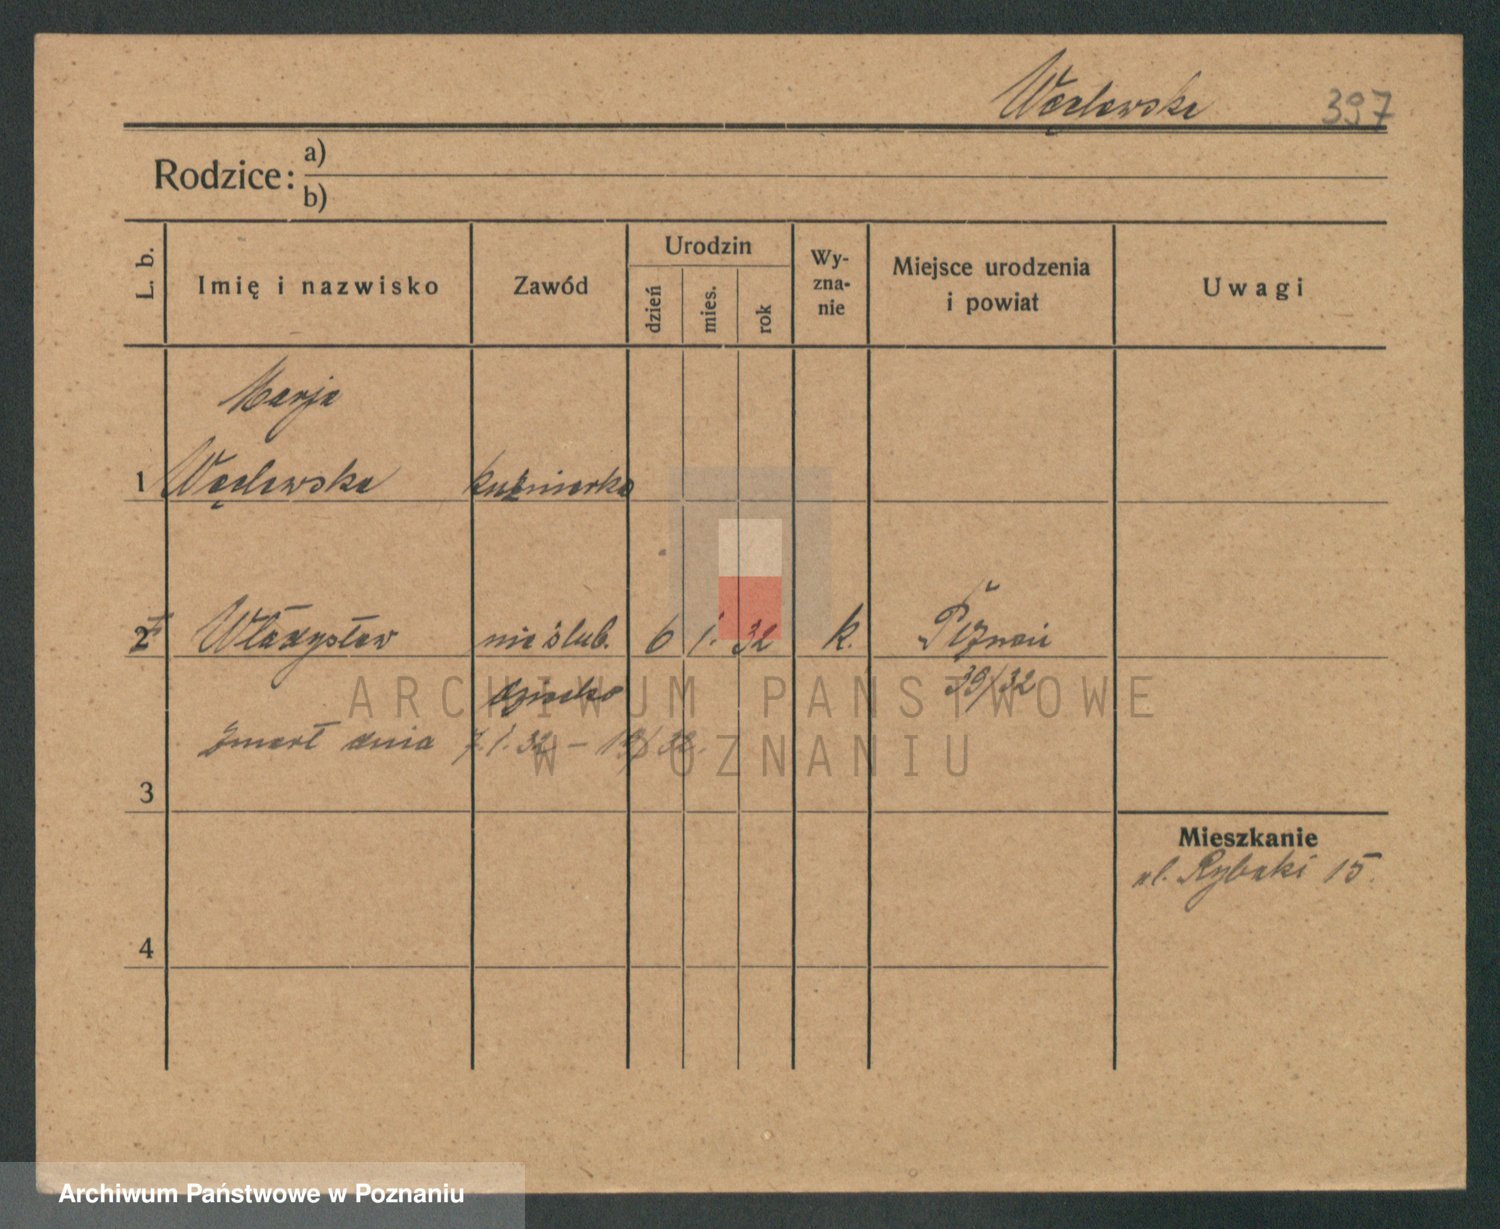 Węclewska 397
Rodzice: a)
b)
L. b. Imię i nazwisko Zawód Urodzin dzień mies. rok Wy-zna-nie Miejsce urodzenia i powiat Uwagi
Marja
1 Węclewska kuśnierka
2 Władysław nieślub. 6 1. 32 k. Poznań
dziecko 39/32
zmarł dnia 7.1.32 –
3
Mieszkanie
ul. Rybaki 15.
4
ARCHIWUM PAŃSTWOWE
W POZNANIU
Archiwum Państwowe w Poznaniu